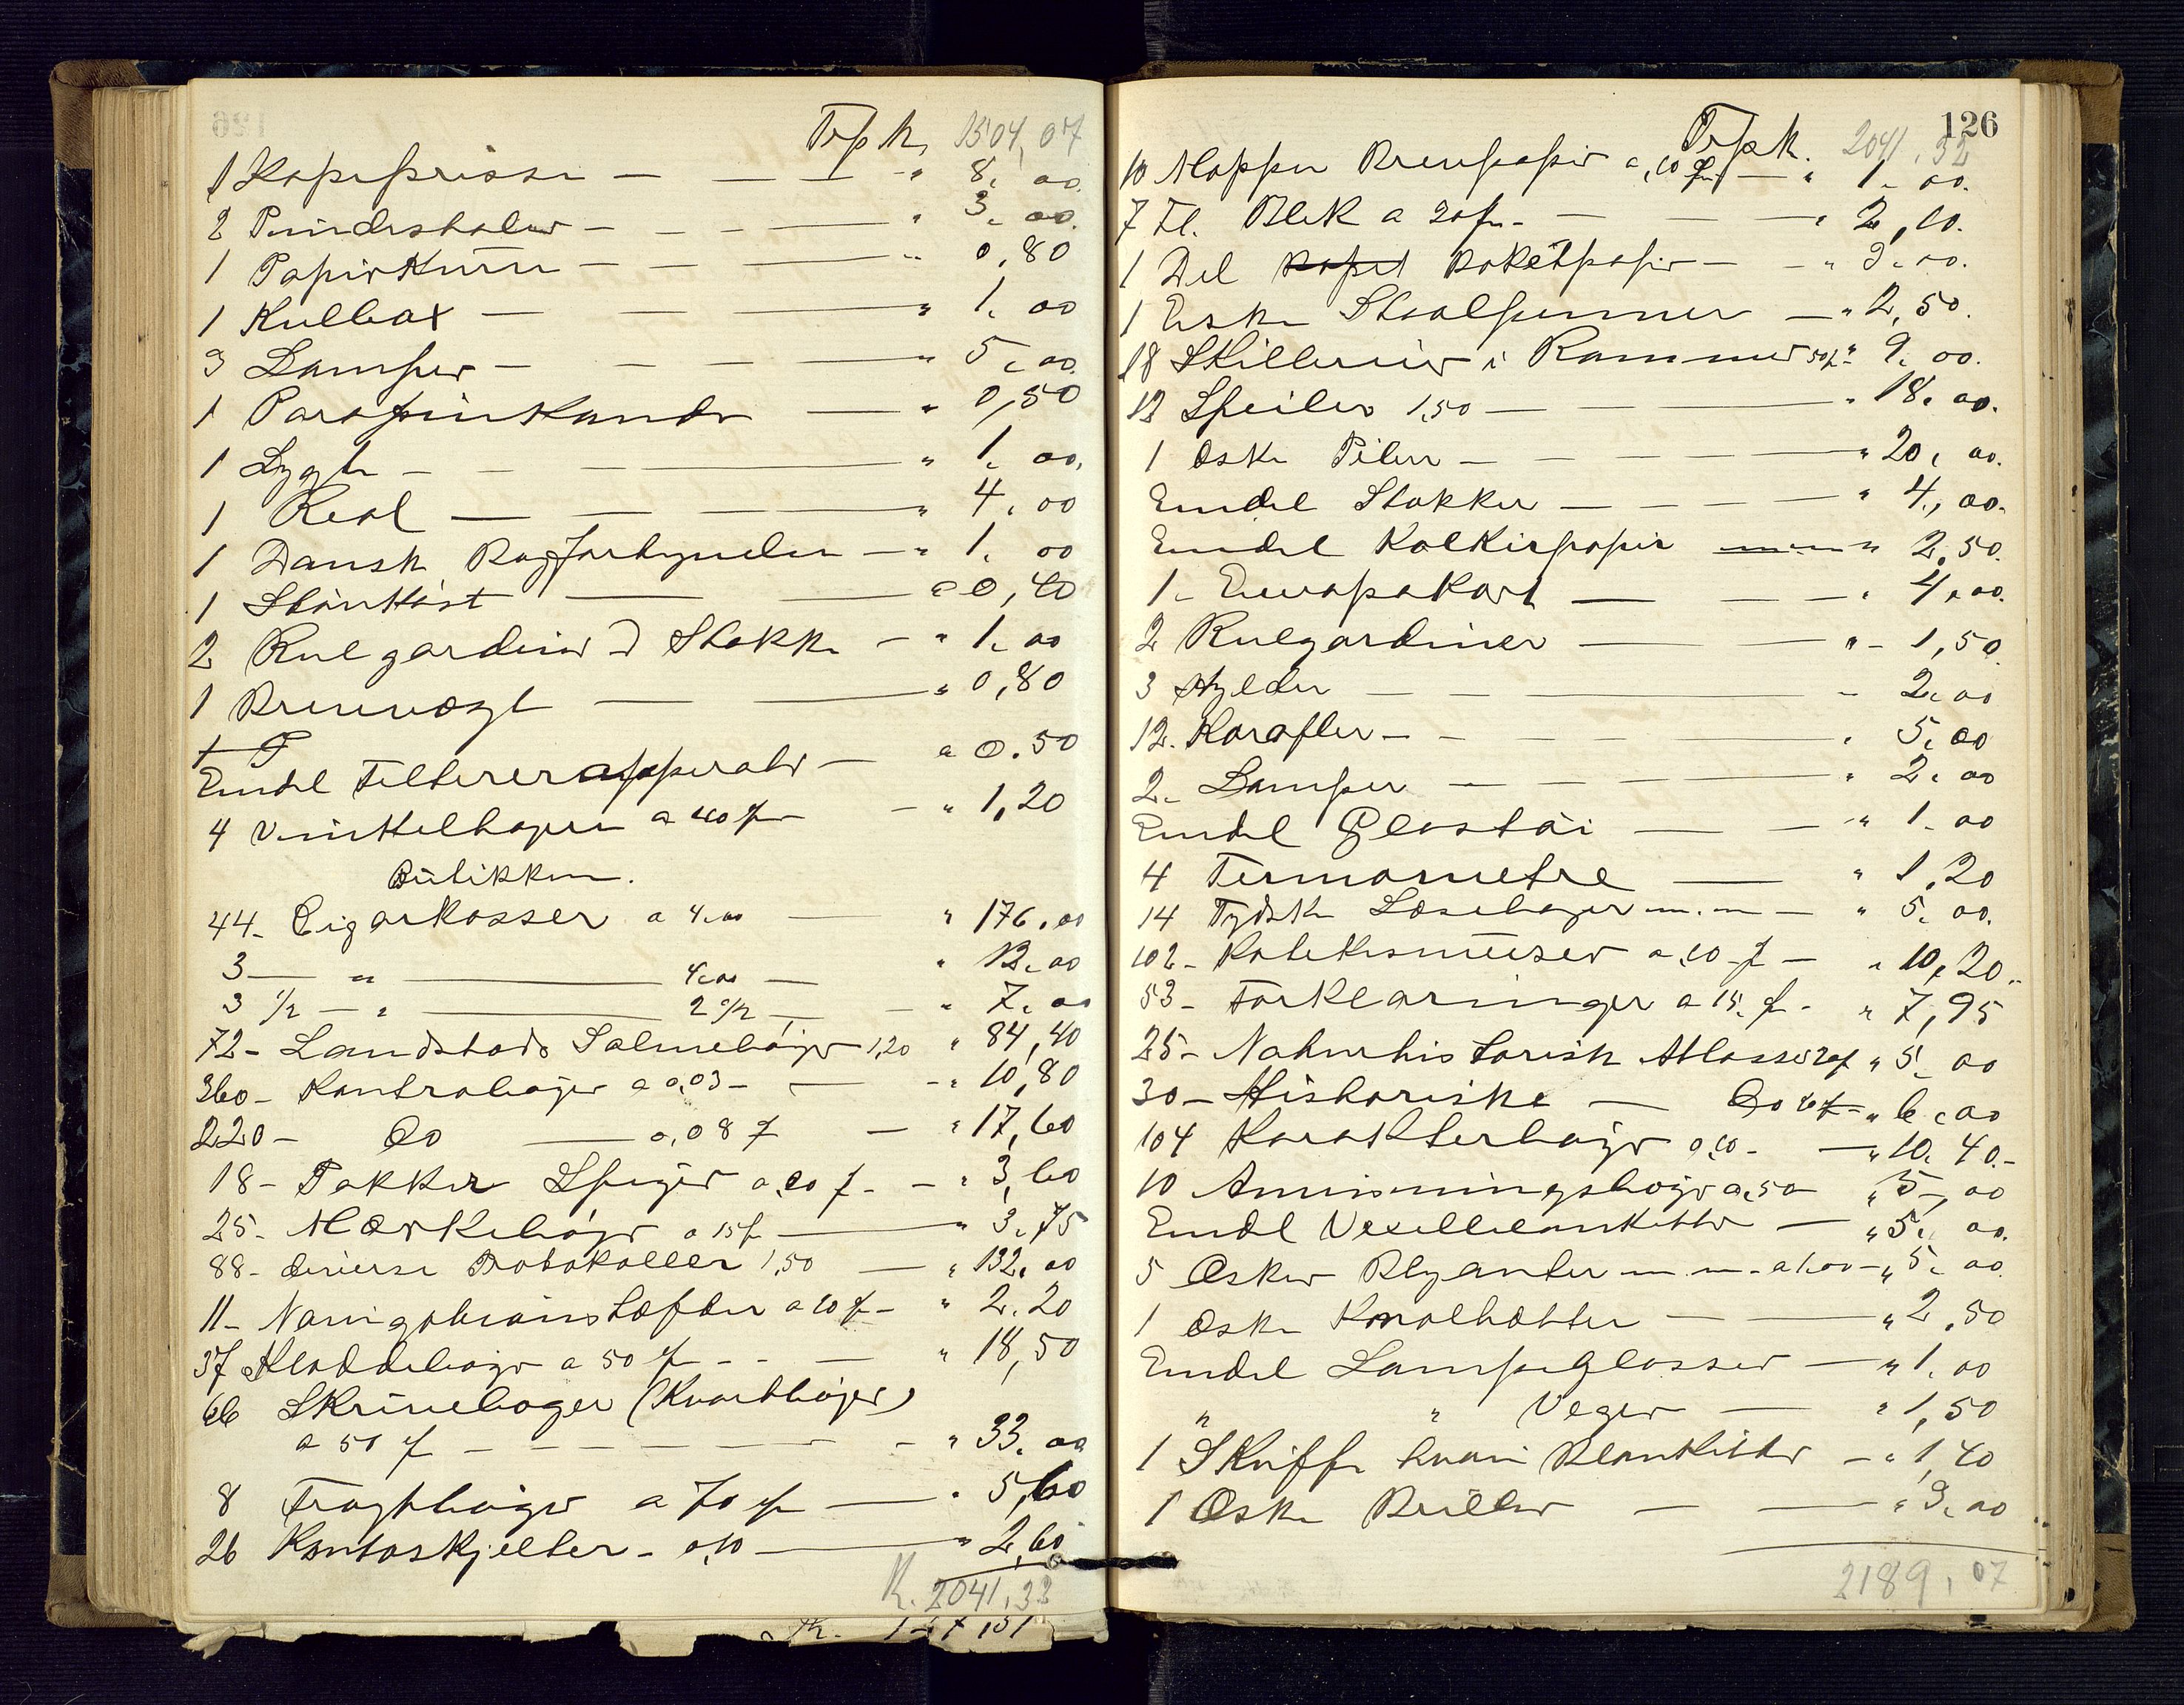 Trpk. 1504,07
1 Kopipresse — — — " 8. 00.
2 Pundestoler — — — " 3. 00.
1 Papirkurv — — — " 0,80
1 Kulbox — — — " 1. 00
3 Lamper — — — " 5. 00.
1 Parafinkande — " 0,50
1 Lygte — — — " 1. 00.
1 Reol — — — " 4. 00
1 Dansk — " 1. 00
1 Støvkost — — 0,40
2 Rulgardiner Stokke — " 1. 00
1 Brevvægt — — " 0,80
Endel Filtererapperater — a 0.50
4 Vinkelhager a 40 — " 1,20
Butikken.
44 - Cigarkasser a 4.00 — " 176.00
3 — " — 4.00 — " 12.00
3 1/2 — " — 2 1/2 — " 7. 00
72 - Landstads Salmebøger 1,20 " 84,40
360 - Kontrabøger a 0,03 — — " 10,80
220 - Do — 0,08 — " 17,60
18 - Pakker Spiger a 20 — " 3,60
25 - Mærkebøger a 15 — " 3.75
88 - diverse Protokoller 1,50 — " 132.00
11 - a 20 — " 2.20
37 Kladdebøger a 50 — — " 18,50
66 Skrivebøger (Kvartbøger)
a 50 — — — " 33. 00
8 Fragtbøger a 70 — " 5,60
26 Kontoskjelter - 0,10 — " 2,60
K. 2041,32
126
Trpk. 2041,32
10 Mapper Brevpapir a ,10 — " 1. 00.
7 Fl. Blek a 30 — — " 2,10.
1 Del Paketpapir — " 3. 00.
1 Eske Staalpenner — " 2,50.
18 Skillerier i Rammer 50 " 9. 00.
12 Speiler 1,50 — — " 18. 00.
1 Æske Piler — — — " 20. 00.
Endel Stokker — — — " 4., 00.
Endel Kalkirpapir " 2,50.
1. Europakart — — " 4,00.
2 Rulgardiner — — " 1,50
3 Hylder — — " 2.00
12. Karafler — — — " 5. 00
2. Lamper — — — " 2. 00
Endel Glastøi — — " 1. 00
4 Termometre — " 1,20
14 Tydske Læsebøger m. m — " 5. 00.
102 - Katekismuser a ,10 — " 10,20
53 - Forklaringer a 15 — " 7,95
25 - Naturhistorisk Atlasser 20 " 5. 00
30 - Historiske — Do 20 — " 6. 00
104 Karakterbøger a ,10 — " 10. 40.-
10 Anvisningsbøger a ,50 " 5., 00
Endel Vexelblanketter — " 5. 00.
5 Æsker Blyanter m. m. a 1.00 — " 5. 00
1 Æske Knalhætter — — " 2,50
Endel Lampeglasser — " 1. 00
" " Veger — " 1,50
1 Skuffe Blanketter — " 1,40
1 Æske Briller — — " 3. 00
2189,07